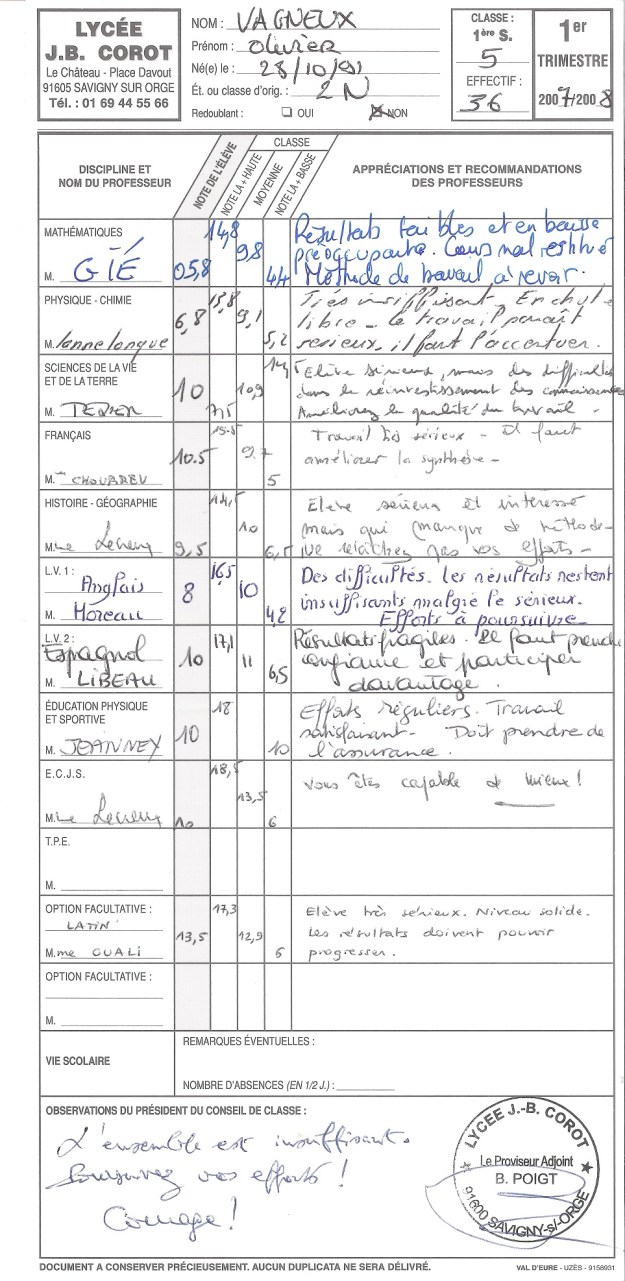 LYCÉE
J.B. COROT
Le Château - Place Davout
91605 SAVIGNY SUR ORGE
Tél. : 01 69 44 55 66
NOM : VAGNEUX
Prénom : Olivier
Né(e) le : 28/10/91
Ét. ou classe d'orig. : 2 N
Redoublant : OUI NON
CLASSE :
1ère S.
5
EFFECTIF :
36
1er
TRIMESTRE
2007/2008
DISCIPLINE ET
NOM DU PROFESSEUR
NOTE DE L'ÉLÈVE
CLASSE
NOTE LA + HAUTE
MOYENNE
NOTE LA + BASSE
APPRÉCIATIONS ET RECOMMANDATIONS
DES PROFESSEURS
MATHÉMATIQUES
M. GIÉ
05,8
14,8
9,8
4,4
Résultats faibles et en baisse
préoccupante. Cours mal restitué
Méthode de travail à revoir.
PHYSIQUE - CHIMIE
M. Lannelongue
6,8
15,8
9,1
5,2
Très insuffisant. En chute
libre - le travail paraît
sérieux, il faut l'accentuer.
SCIENCES DE LA VIE
ET DE LA TERRE
M.
10
10,9
7,5
Elève sérieux, mais des difficultés
dans le réinvestissement des connaissances
Améliorez la qualité du travail -
FRANÇAIS
M.me CHOUAREU
10.5
15.5
9.7
5
Travail très sérieux - Il faut
améliorer la synthèse -
HISTOIRE - GÉOGRAPHIE
M.lle
9,5
14,5
10
6,5
Elève sérieux et intéressé
mais qui manque de méthode -
Ne relâchez pas vos efforts -
L.V. 1 :
Anglais
M. Moreau
8
16,5
10
4,2
Des difficultés. Les résultats restent
insuffisants malgré le sérieux.
Efforts à poursuivre
L.V. 2 :
Espagnol
M. LIBEAU
10
17,1
11
6,5
Résultats fragiles. Il faut prendre
confiance et participer
davantage.
ÉDUCATION PHYSIQUE
ET SPORTIVE
M. JEANNEY
10
18
10
Efforts réguliers. Travail
satisfaisant - Doit prendre de
l'assurance.
E.C.J.S.
M.lle
10
18,5
13,5
6
Vous êtes capable de mieux !
T.P.E.
M.
OPTION FACULTATIVE :
LATIN
M.me OUALI
13,5
17,3
12,9
6
Elève très sérieux. Niveau solide.
Les résultats doivent pouvoir
progresser.
OPTION FACULTATIVE :
M.
VIE SCOLAIRE
REMARQUES ÉVENTUELLES :
NOMBRE D'ABSENCES (EN 1/2 J.) :
OBSERVATIONS DU PRÉSIDENT DU CONSEIL DE CLASSE :
L'ensemble est insuffisant.
Poursuivez vos efforts !
Courage !
LYCEE J.-B. COROT
Le Proviseur Adjoint
B. POIGT
91600 SAVIGNY-s/-ORGE
DOCUMENT A CONSERVER PRÉCIEUSEMENT. AUCUN DUPLICATA NE SERA DÉLIVRÉ.
VAL D'EURE - UZÈS - 9158931